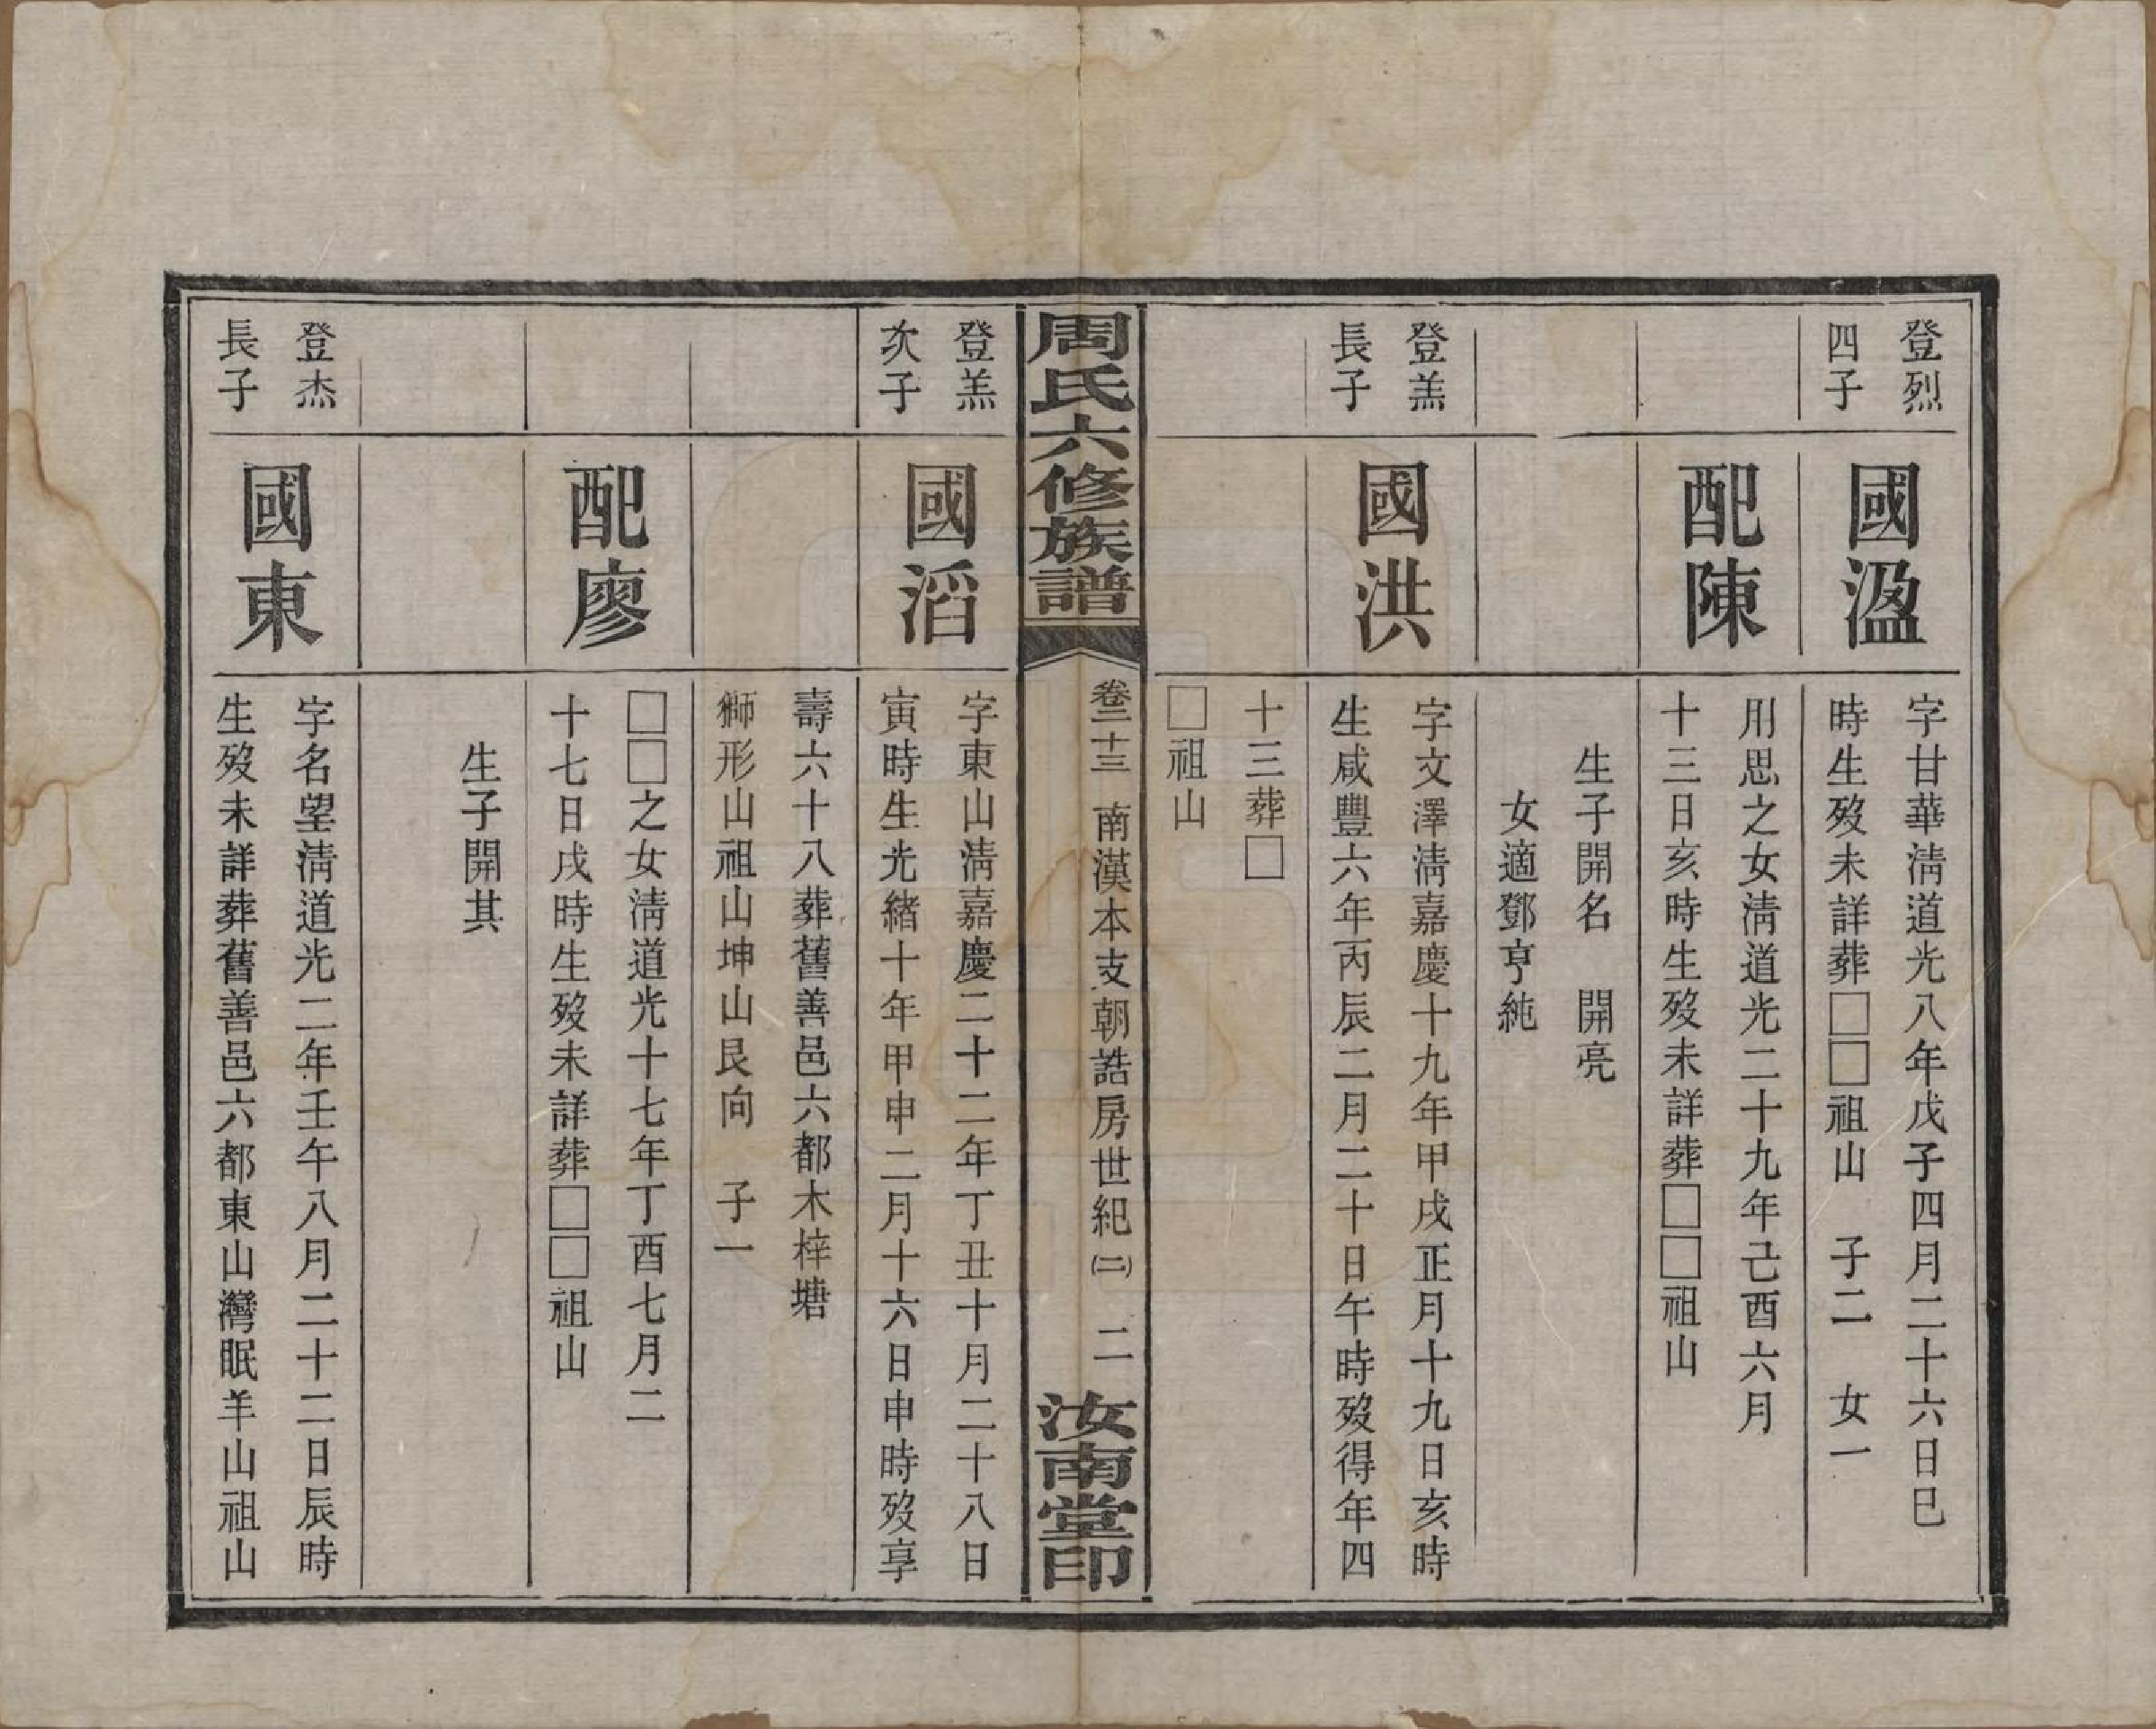 登烈
四子
國溋
字甘華淸道光八年戊子四月二十六日巳
時生歿未詳葬□□祖山　子二　女一
配陳
用思之女淸道光二十九年己酉六月
十三日亥時生歿未詳葬□□祖山
生子開名　開亮
女適鄧亨純
登羔
長子
國洪
字文澤淸嘉慶十九年甲戌正月十九日亥時
生咸豐六年丙辰二月二十日午時歿得年四
十三葬□
□祖山
周氏六修族譜
卷二十三　南漢本支朝誥房世紀(二)　二
汝南堂印
登羔
次子
國滔
字東山淸嘉慶二十二年丁丑十月二十八日
寅時生光緒十年甲申二月十六日申時歿享
壽六十八葬舊善邑六都木梓塘
獅形山祖山坤山艮向　子一
配廖
□□之女淸道光十七年丁酉七月二
十七日戌時生歿未詳葬□□祖山
生子開其
登杰
長子
國東
字名望淸道光二年壬午八月二十二日辰時
生歿未詳葬舊善邑六都東山灣眠羊山祖山